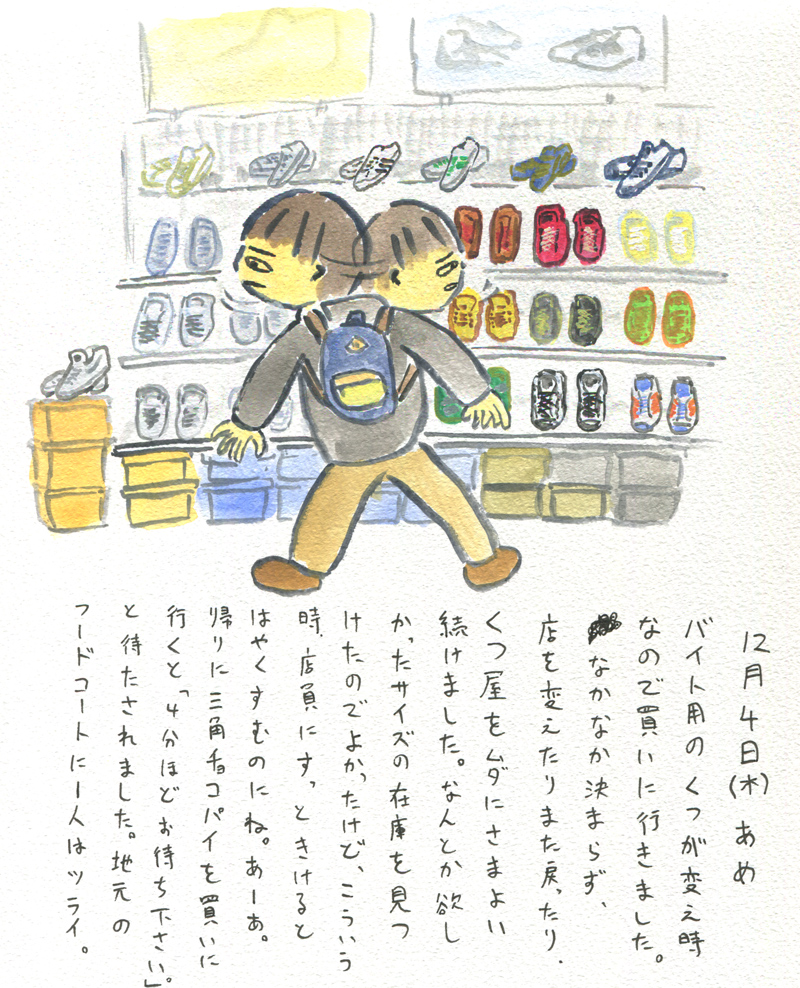 12月4日(木) あめ
バイト用のくつが変え時
なので買いに行きました。
なかなか決まらず、
店を変えたりまた戻ったり、
くつ屋をムダにさまよい
続けました。なんとか欲し
かったサイズの在庫を見つ
けたのでよかったけど、こういう
時、店員にすっときけると
はやくすむのにね。あーあ。
帰りに三角チョコパイを買いに
行くと「4分ほどお待ち下さい」
と待たされました。地元の
フードコートに1人はツライ。